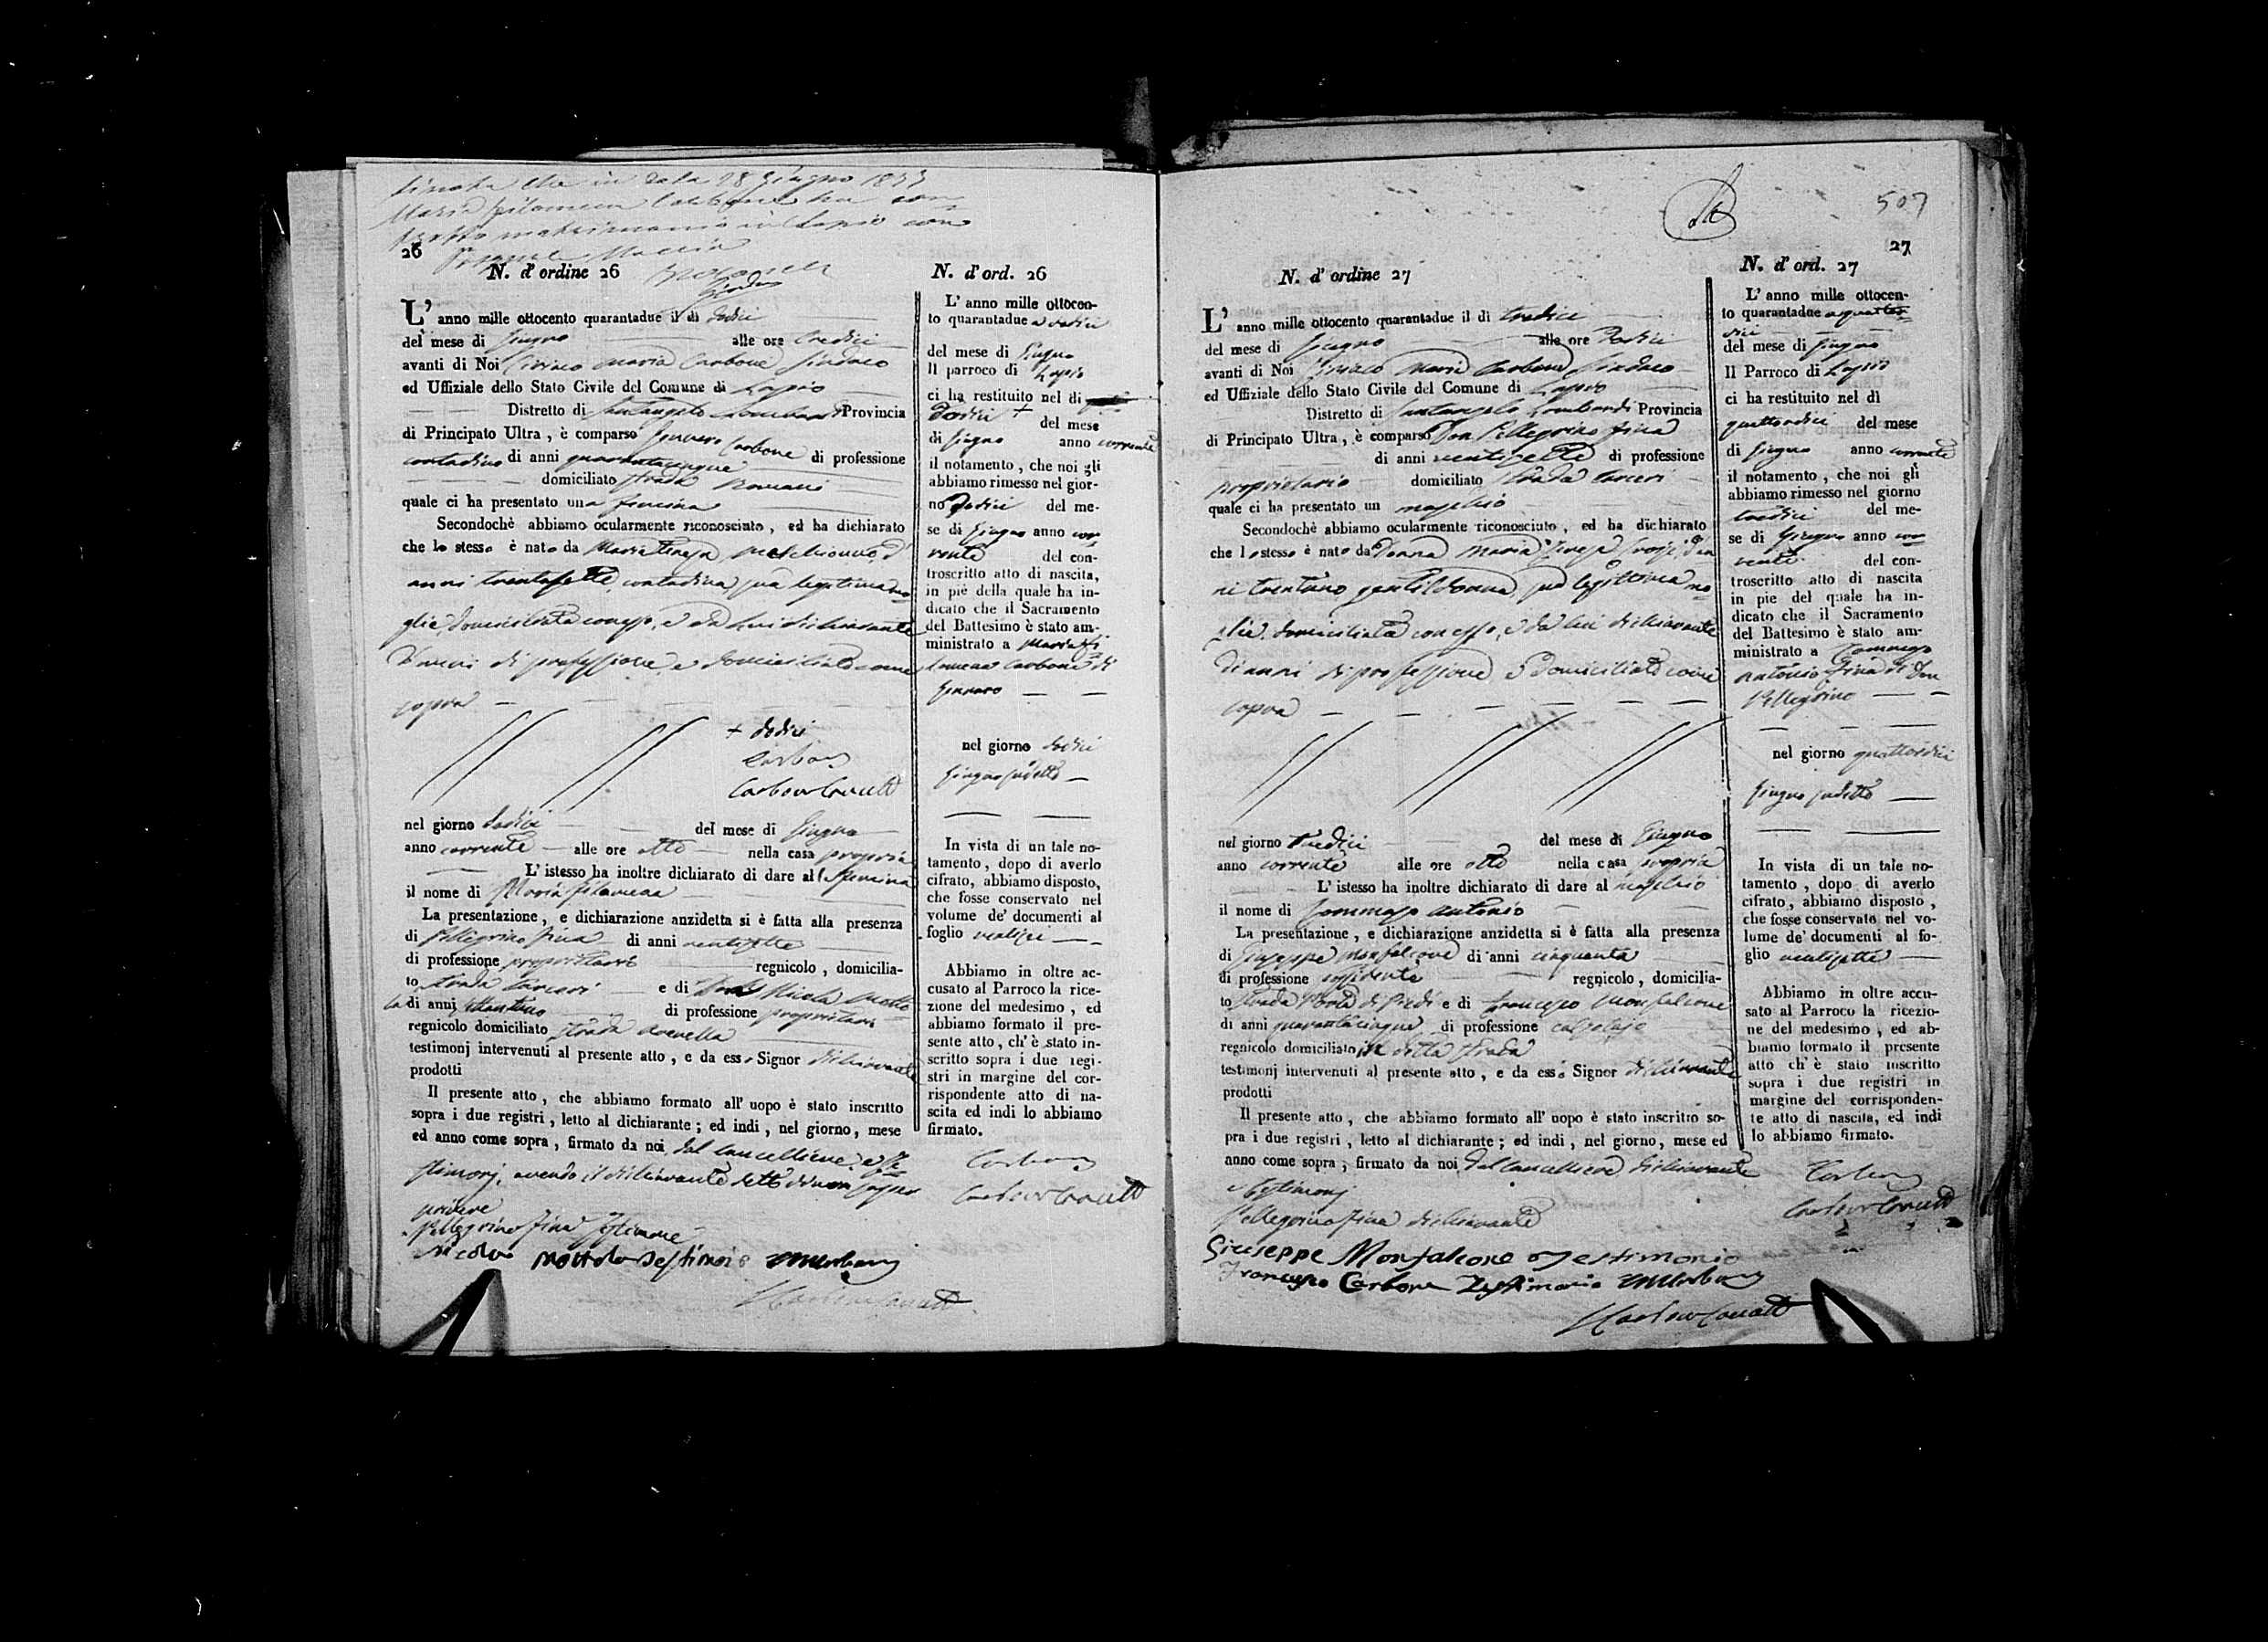 Si nota che in data 28 Giugno 18
Maria Filomena Carbone ha con
tratto matrimonio in Lapio con
26
N. d'ordine 26
L'anno mille ottocento quarantadue il di dodici
del mese di Giugno alle ore tredici
avanti di Noi Ciriaco Maria Carbone Sindaco
ed Uffiziale dello Stato Civile del Comune di Lapio
Distretto di Santangelo Lombardi Provincia
di Principato Ultra, è comparso Gennaro Carbone
contadino di anni quarantacinque di professione
domiciliato strada Romani
quale ci ha presentato una femina
Secondochè abbiamo ocularmente riconosciuto, ed ha dichiarato
che lo stesso è nato da Maria Teresa d'
anni trentasette, contadina, sua legitima mo
glie, domiciliata con esso, e da lui dichiarante
d'anni di professione e domiciliato come
sopra
+ dodici
Carbone
Carbone Cancell
nel giorno dodici del mese di Giugno
anno corrente alle ore otto nella casa propria
L'istesso ha inoltre dichiarato di dare al femina
il nome di Maria Filomena
La presentazione, e dichiarazione anzidetta si è fatta alla presenza
di Pellegrino Fina di anni ventisette
di professione proprietario regnicolo, domicilia-
to strada Carceri e di Nicola Motto
la di anni di professione proprietario
regnicolo domiciliato strada
testimonj intervenuti al presente atto, e da esso Signor dichiarante
prodotti
Il presente atto, che abbiamo formato all' uopo è stato inscritto
sopra i due registri, letto al dichiarante; ed indi, nel giorno, mese
ed anno come sopra, firmato da noi dal Cancelliere e te
stimonj, avendo il dichiarante detto di non sapere
scrivere
Pellegrino Fina testimone
Nicola Mottola Testimonio
N. d'ord. 26
L'anno mille ottocen-
to quarantadue a dodici
del mese di Giugno
Il parroco di Lapio
ci ha restituito nel di
dodici + del mese
di Giugno anno corrente
il notamento, che noi gli
abbiamo rimesso nel gior-
no dodici del me-
se di Giugno anno cor
rente del con-
troscritto atto di nascita,
in piè della quale ha in-
dicato che il Sacramento
del Battesimo è stato am-
ministrato a Maria Fi
lomena Carbone di
Gennaro
nel giorno dodici
Giugno sudetto
In vista di un tale no-
tamento, dopo di averlo
cifrato, abbiamo disposto,
che fosse conservato nel
volume de' documenti al
foglio ventisei
Abbiamo in oltre ac-
cusato al Parroco la rice-
zione del medesimo, ed
abbiamo formato il pre-
sente atto, ch' è stato in-
scritto sopra i due regi-
stri in margine del cor-
rispondente atto di na-
scita ed indi lo abbiamo
firmato.
Carbone
Carbone Cancell
507
27
N. d'ordine 27
L'anno mille ottocento quarantadue il di tredici
del mese di Giugno alle ore dodici
avanti di Noi Ciriaco Maria Carbone Sindaco
ed Uffiziale dello Stato Civile del Comune di Lapio
Distretto di Santangelo Lombardi Provincia
di Principato Ultra, è comparso Don Pellegrino Fina
di anni ventisette di professione
proprietario domiciliato strada Carceri
quale ci ha presentato un maschio
Secondochè abbiamo ocularmente riconosciuto, ed ha dichiarato
che lo stesso è nato da Donna Maria Teresa d'an
ni trentuno gentildonna, sua legittima mo
glie, domiciliata con esso, e da lui dichiarante
di anni di professione e domiciliato come
sopra
nel giorno tredici del mese di Giugno
anno corrente alle ore otto nella casa propria
L'istesso ha inoltre dichiarato di dare al maschio
il nome di Tommaso Antonio
La presentazione, e dichiarazione anzidetta si è fatta alla presenza
di Giuseppe Monfalcone di anni cinquanta
di professione regnicolo, domicilia-
to strada e di Francesco Monfalcone
di anni quarantacinque di professione calzolajo
regnicolo domiciliato in detta strada
testimonj intervenuti al presente atto, e da esso Signor dichiarante
prodotti
Il presente atto, che abbiamo formato all' uopo è stato inscritto so-
pra i due registri, letto al dichiarante; ed indi, nel giorno, mese ed
anno come sopra, firmato da noi dal Cancelliere dichiarante
e testimonj
Pellegrino Fina dichiarante
Giuseppe Monfalcone Testimonio
Francesco Carbone Testimonio
N. d'ord. 27
L'anno mille ottocen-
to quarantadue a quattor-
dici
del mese di Giugno
Il Parroco di Lapio
ci ha restituito nel di
quattordici del mese
di Giugno anno corrente
il notamento, che noi gli
abbiamo rimesso nel giorno
tredici del me-
se di Giugno anno cor
rente del con-
troscritto atto di nascita
in pie del quale ha in-
dicato che il Sacramento
del Battesimo è stato am-
ministrato a Tommaso
Antonio Fina di Don
Pellegrino
nel giorno quattordici
Giugno sudetto
In vista di un tale no-
tamento, dopo di averlo
cifrato, abbiamo disposto,
che fosse conservato nel vo-
lume de' documenti al fo-
glio ventisette
Abbiamo in oltre accu-
sato al Parroco la ricezio-
ne del medesimo, ed ab-
biamo formato il presente
atto ch' è stato inscritto
sopra i due registri in
margine del corrisponden-
te atto di nascita, ed indi
lo abbiamo firmato.
Carbone
Carbone Cancell